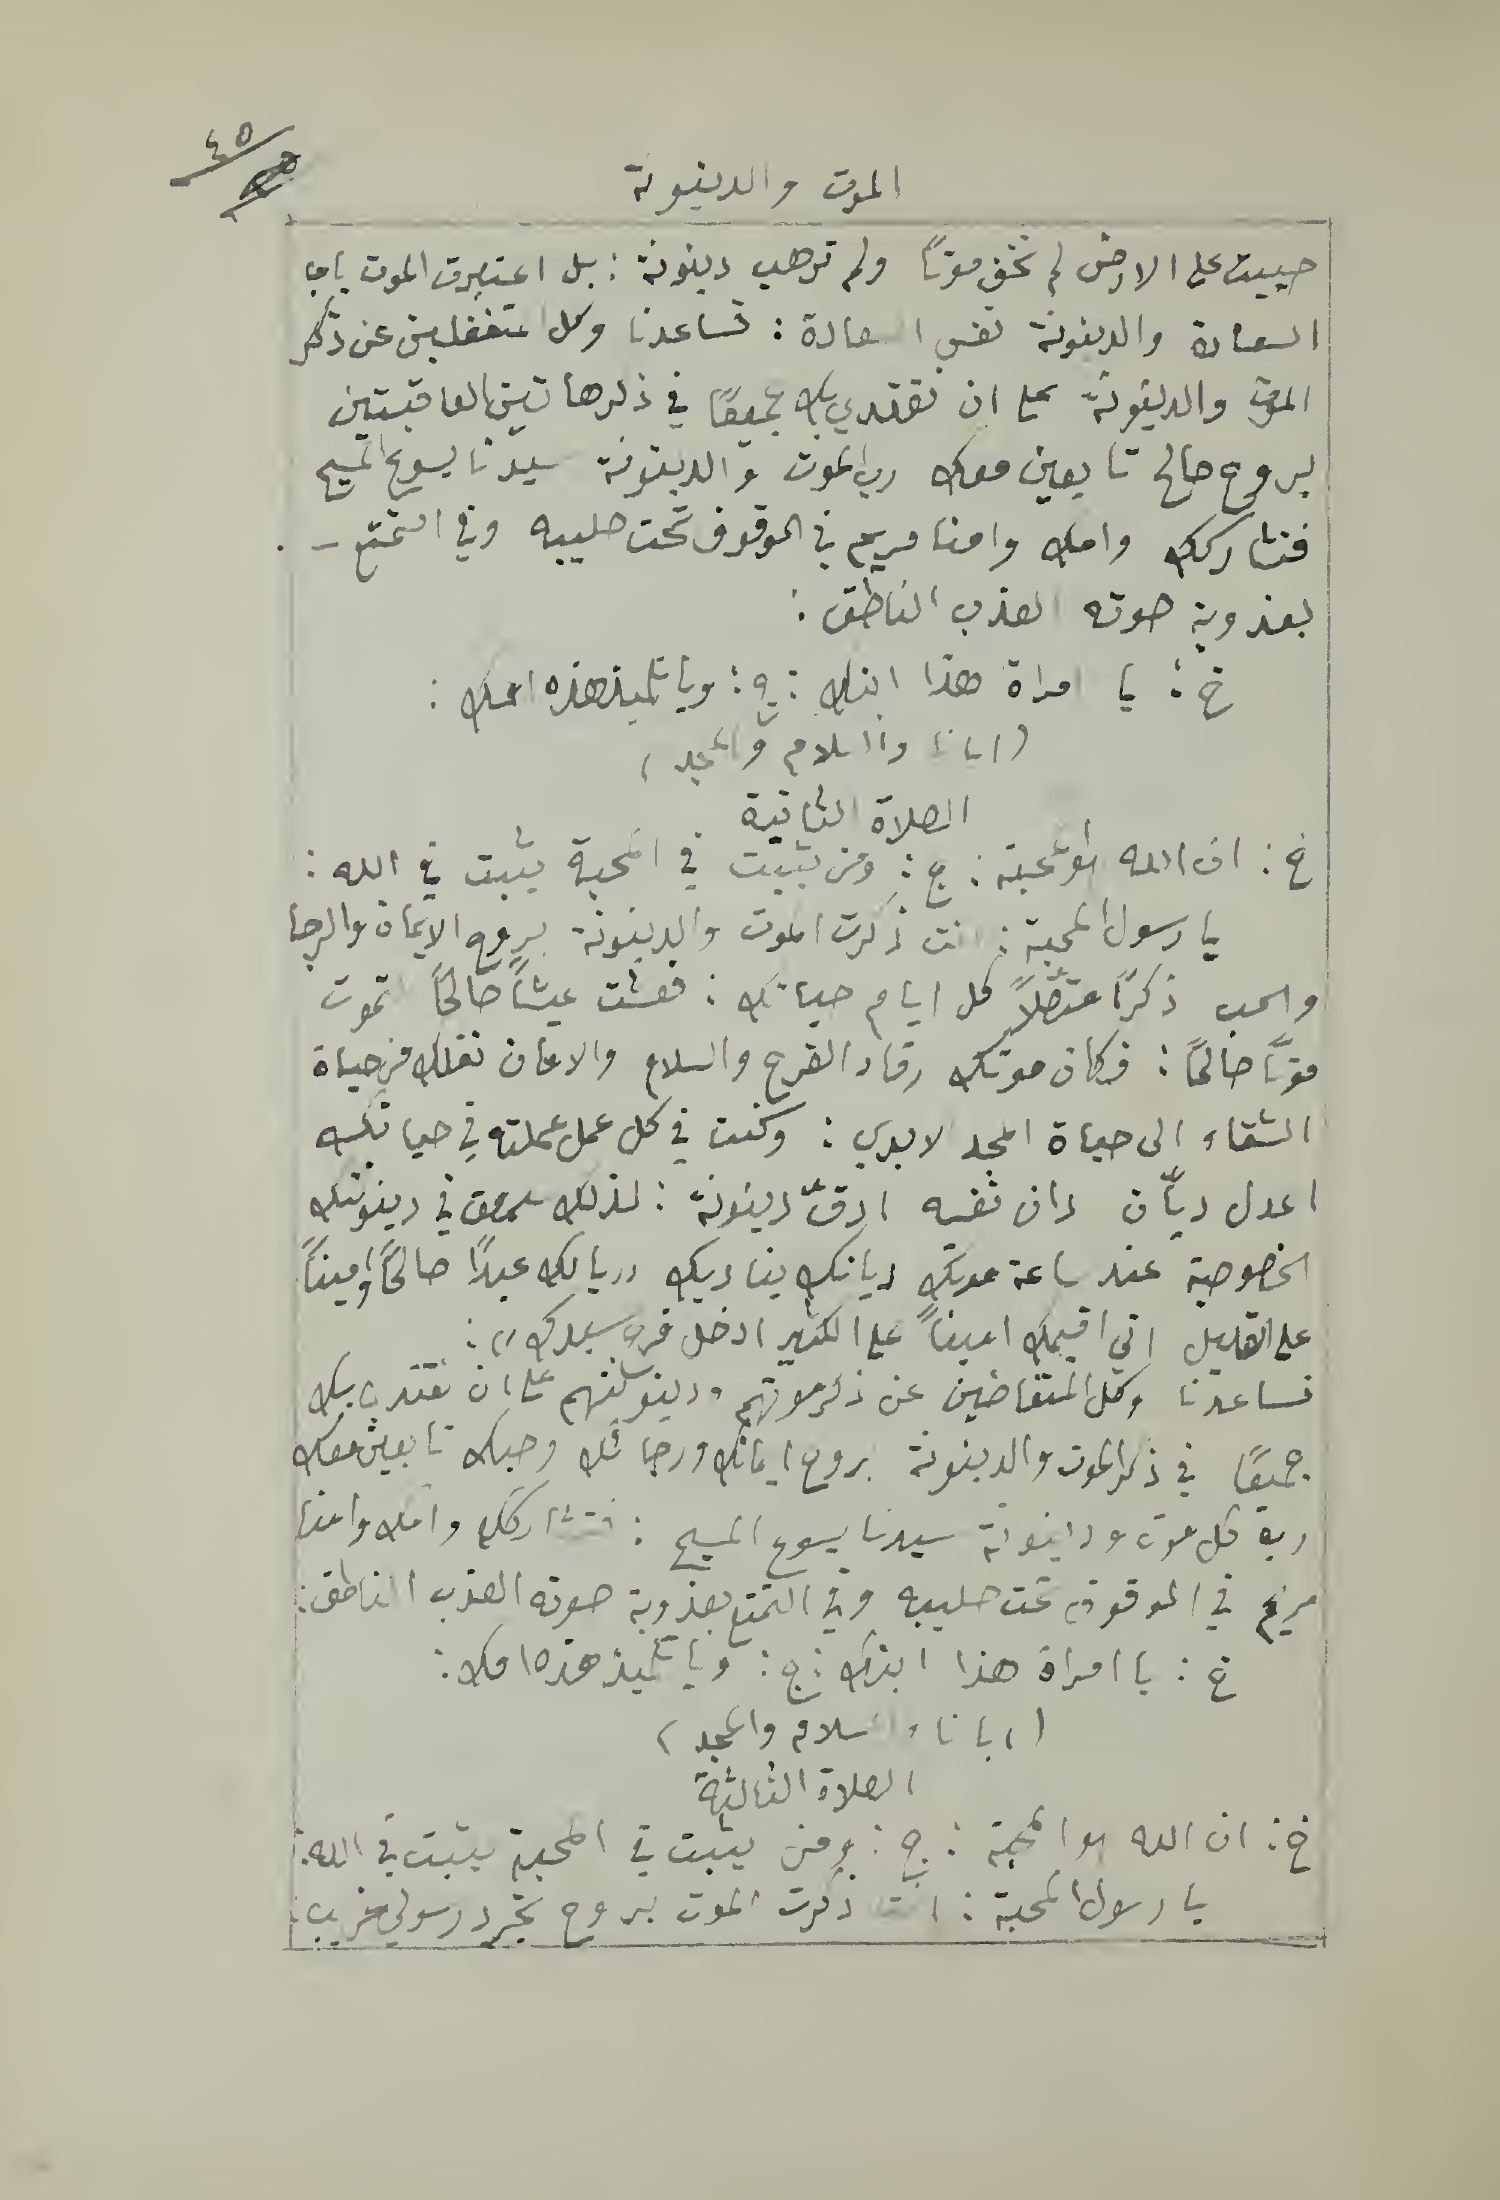 ٤٥
الموت والدينونة
حييت على الارض لم تخف موتاً ولم ترهب دينونة : بل اعتبرت الموت باب
السعادة والدينونة نفس السعادة : تساعدنا وكل متغفلين عن ذكر
الموت والدينونة على ان نقتدي بك جميعًا في ذكر هاتين العاقبتين
بروح صالح تابعين معك رب الموت والدينونة سيدنا يسوع المسيح
فنشاركك وامك وامنا مريم في الموقوف تحت صليبه وفي التمتع -
بعذوبة صوته العذب الناطق :
خ : يا امراة هذا ابنك : ج : ويا تلميذ هذه امك :
( ابانا والسلام والمجد )
الصلاة الثانية
خ : ان الله هو محبة : ج : ومن يثبت في المحبة يثبت في الله :
يا رسول المحبة : انت ذكرت الموت والدينونة بروح الايمان والرجا
والحب ذكرًا متصلاً كل ايام حياتك : فعشت عيشاً صالحًا تموت
موتًا صالحًا : فكان موتك رقاد الفرح والسلام والامان نقلك من حياة
الشقاء الى حياة المجد لابدي : وكنت في كل عمل عملته في حياتك
اعدل ديّان دان نفسه ادقّ دينونة : لذلك سمعت في دينونتك
الخصوصية عند ساعة موتك ديانك يناديك ((يا لك عبدًا صالحًا واميناً
على القليل اني اقيمك اميناً على الكثير ادخل فرح سيدك )) :
تساعدنا وكل المتغاضين عن ذكر موتهم ودينونتهم على ان نقتدي بك
جميعًا في ذكر الموت والدينونة بروح ايمانك ورجائك وحبك تابعين معك
رب كل موت ودينونة سيدنا يسوع المسيح : فنشاركك وامك وامنا
مريم في الموقوف تحت صليبه وفي التمتع بعذوبة صوته العذب الناطق :
خ : يا امراة هذا ابنك : ج : ويا تلميذ هذه امك :
( ابانا والسلام والمجد )
الصلاة الثالثة
خ : ان الله هو المحبة : ج : ومن يثبت في المحبة يثبت في الله :
يا رسول المحبة : انت ذكرت الموت بروح تجرد رسولي غريب :